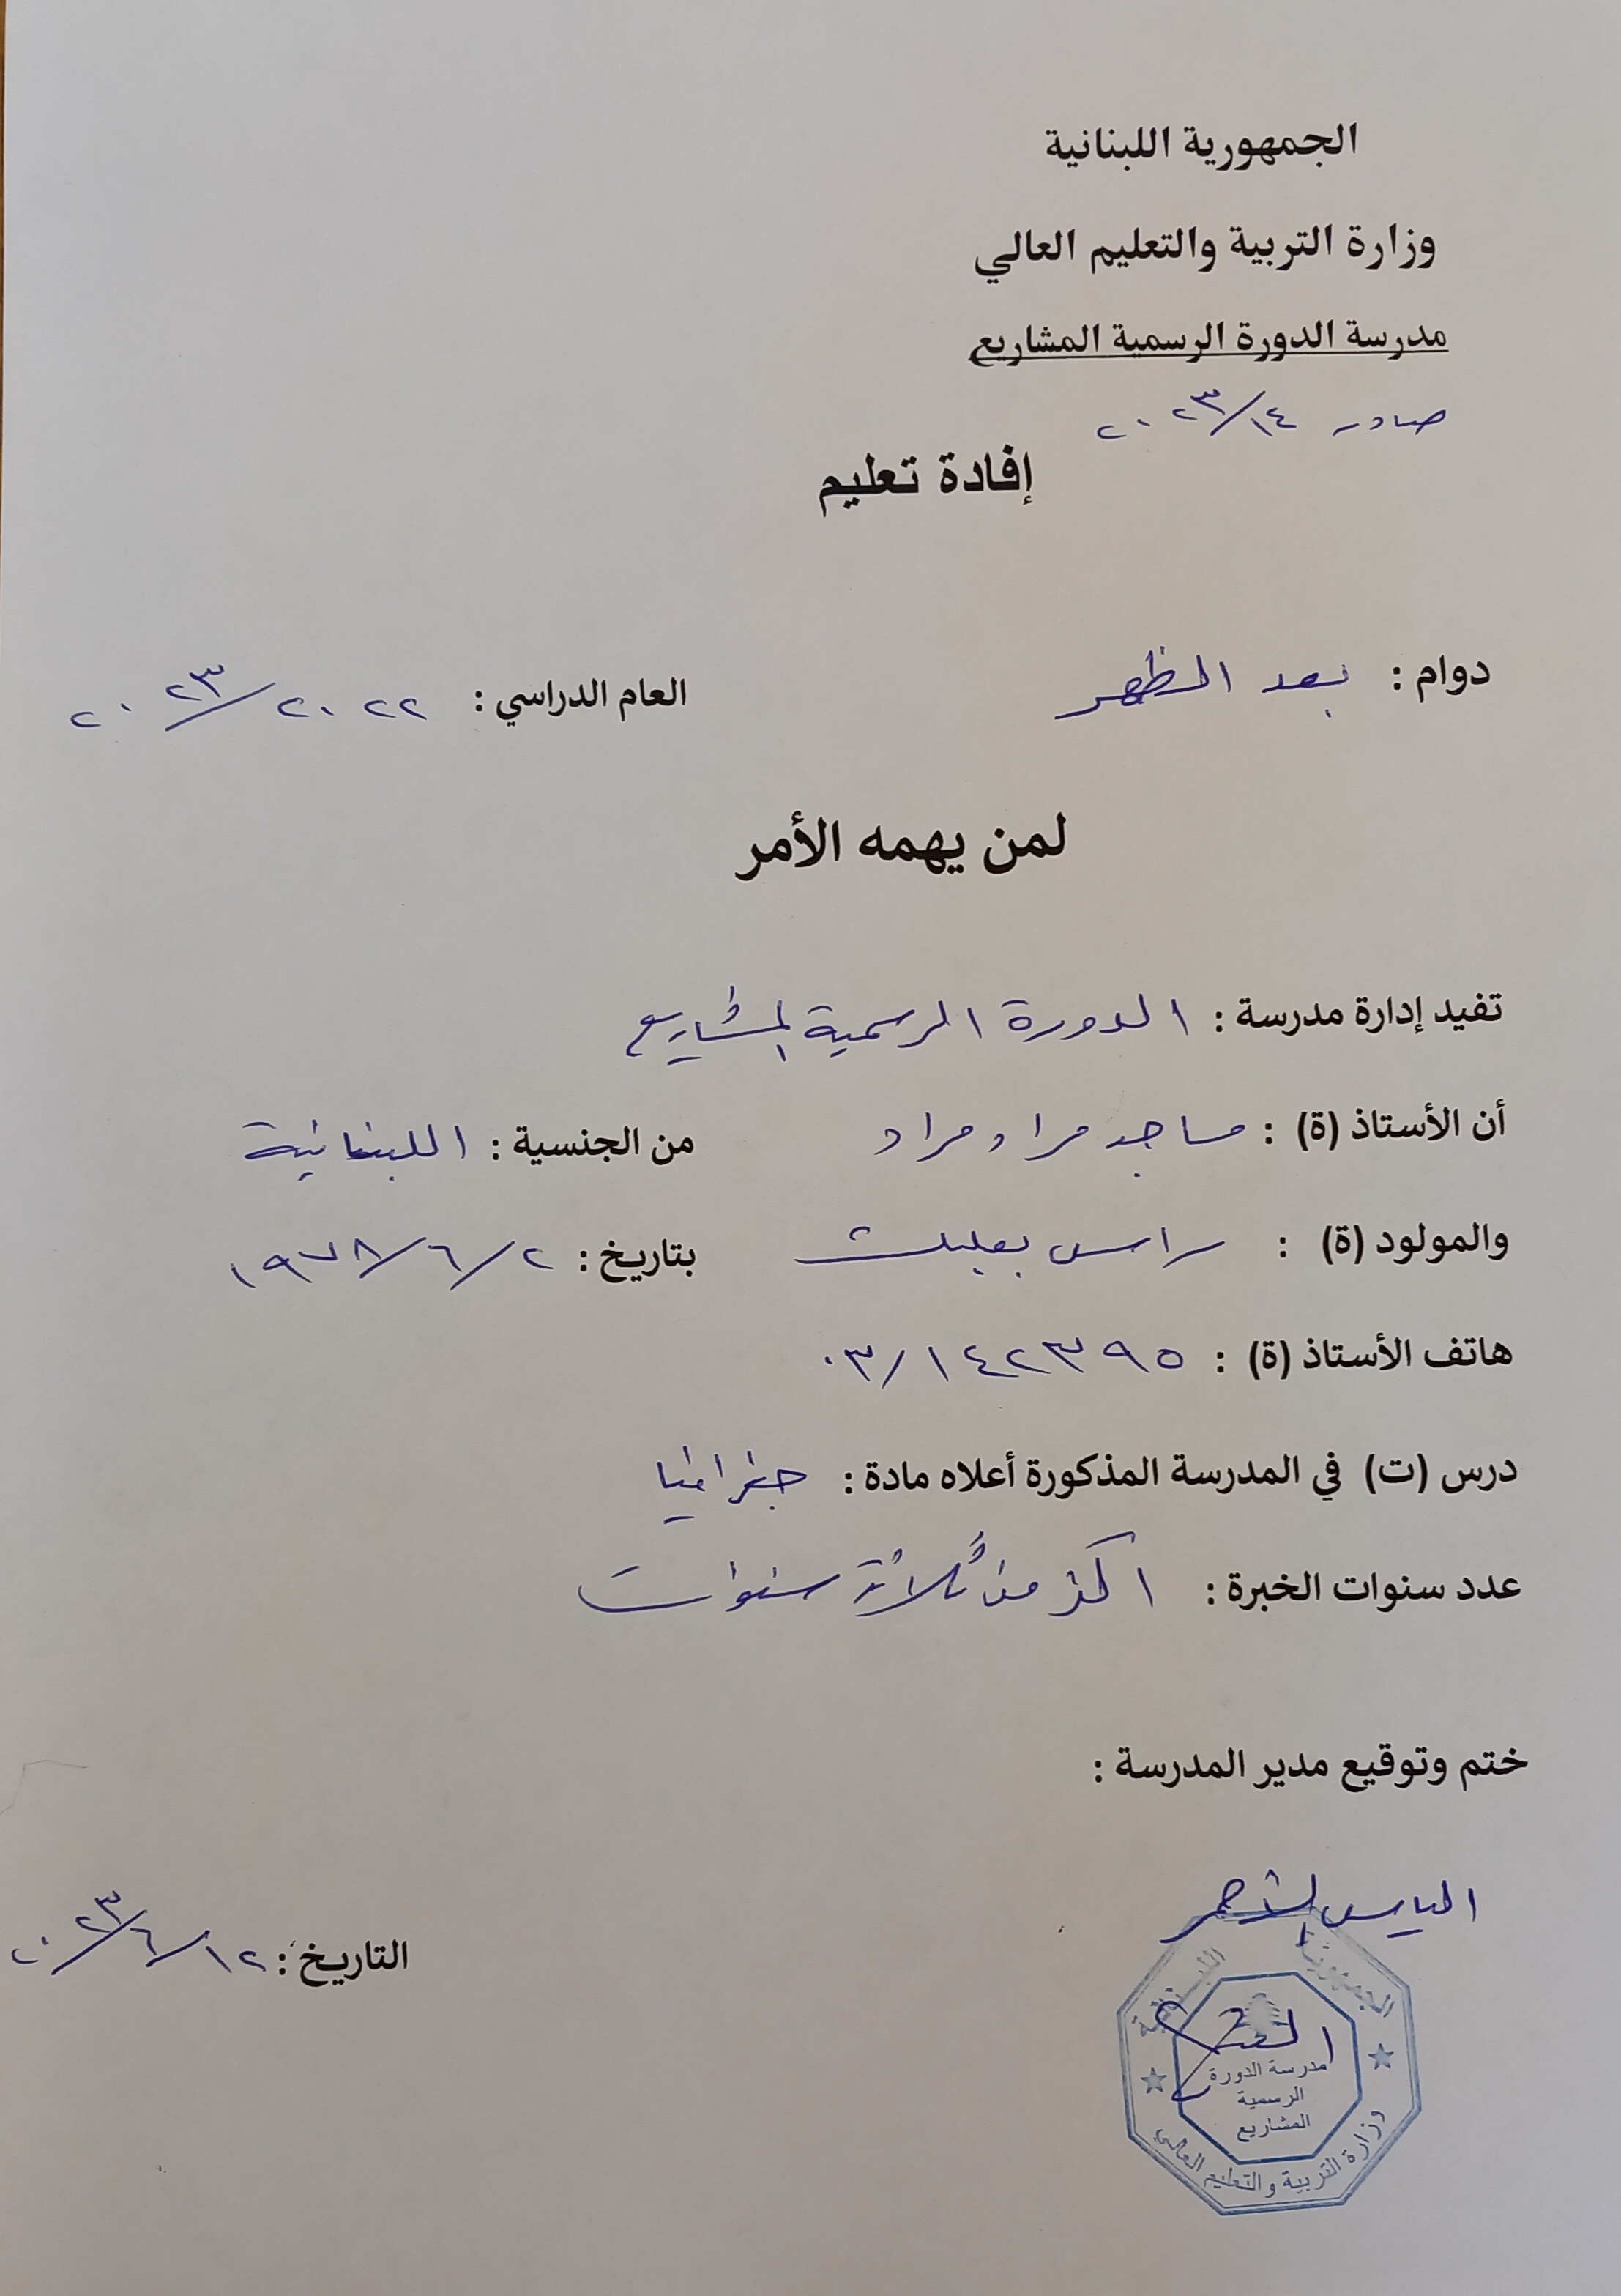 الجمهورية اللبنانية
وزارة التربية والتعليم العالي
مدرسة الدورة الرسمية المشاريع
صادر ١٤/٢٠٢٣
إفادة تعليم
دوام : بعد الظهر العام الدراسي : ٢٠٢٢/٢٠٢٣
لمن يهمه الأمر
تفيد إدارة مدرسة : الدورة الرسمية المشاريع
أن الأستاذ (ة) : ماجد مراد مراد من الجنسية : اللبنانية
والمولود (ة) : راس بعلبك بتاريخ : ٢/٦/١٩٧٨
هاتف الأستاذ (ة) : ٠٣/١٤٢٣٩٥
درس (ت) في المدرسة المذكورة أعلاه مادة : جغرافيا
عدد سنوات الخبرة : اكثر من ثلاثة سنوات
ختم وتوقيع مدير المدرسة :
الياس
التاريخ : ١٢/٦/٢٠٢٣
الجمهورية اللبنانية
مدرسة الدورة
الرسمية
المشاريع
وزارة التربية والتعليم العالي